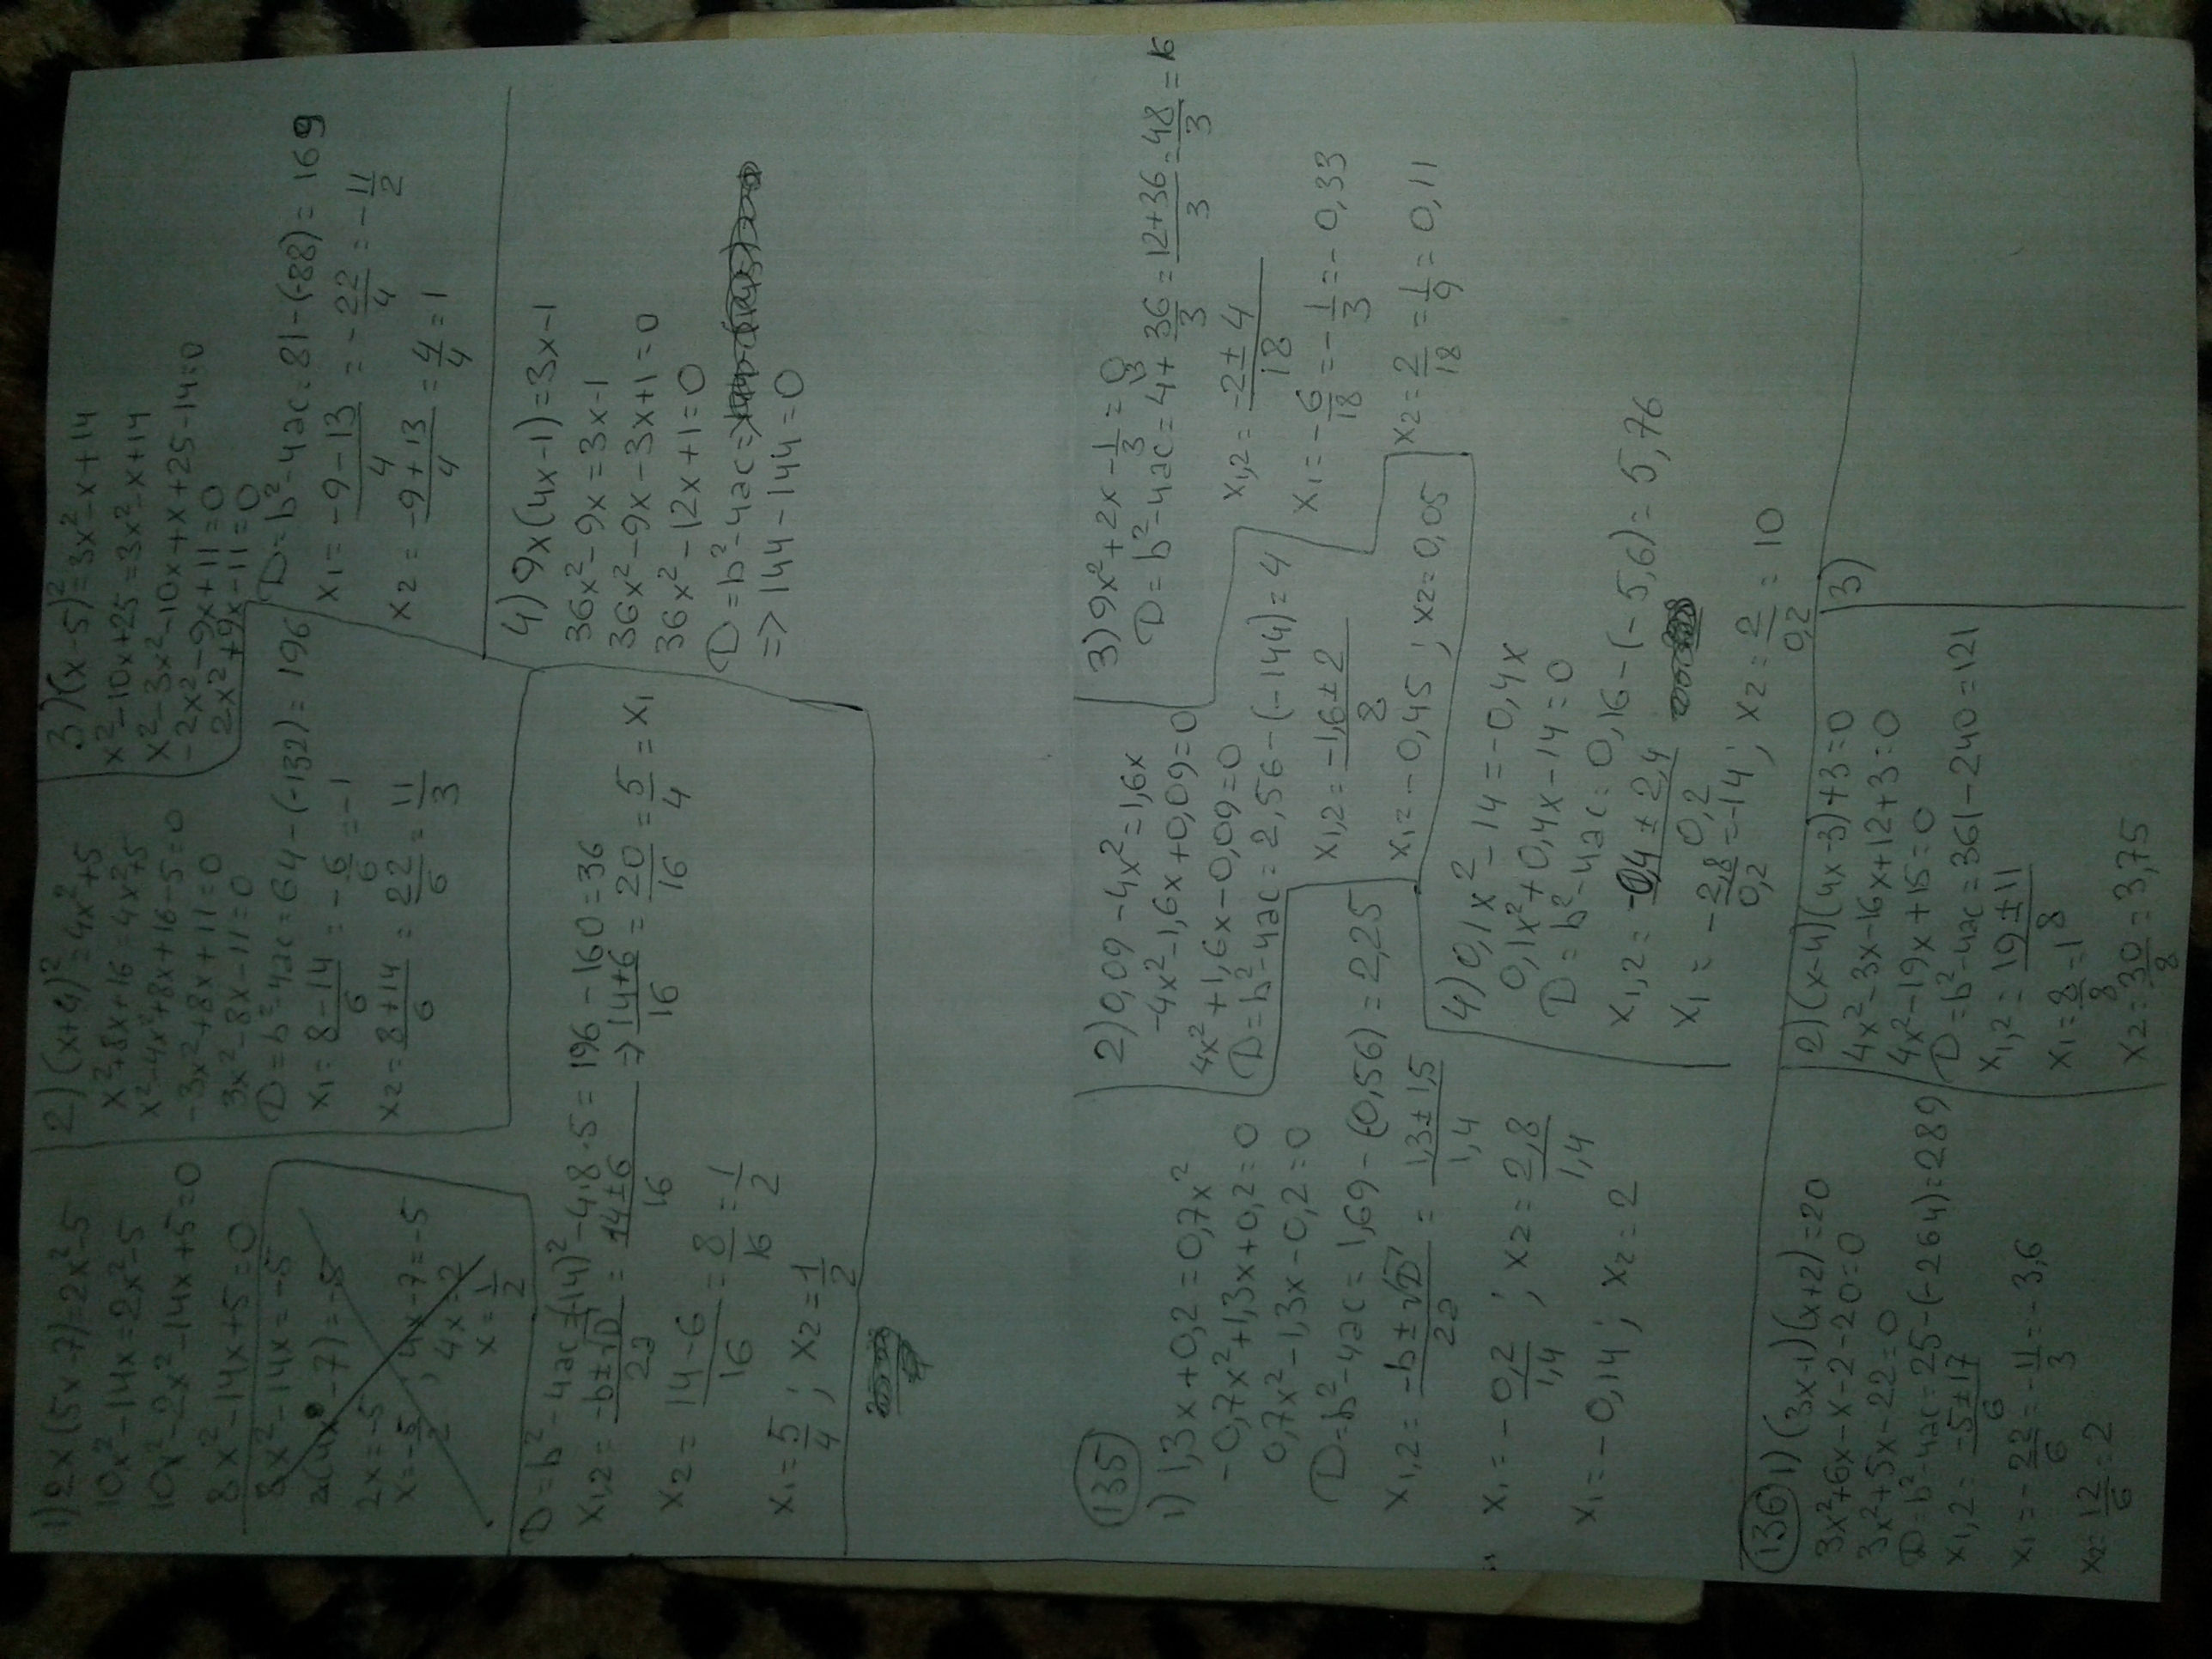 1) 2x(5x-7)=2x²-5
10x²-14x=2x²-5
10x²-2x²-14x+5=0
8x²-14x+5=0
8x²-14x=-5
2x=-5 ; 4x-7=-5
x=-5/2 4x=2
x=1/2
D=b²-4ac=(-14)²-4·8·5=196-160=36
x1,2=-b±√D/2a=14±6/16=>14+6/16=20/16=5/4=x1
x2=14-6/16=8/16=1/2
x1=5/4 ; x2=1/2
2) (x+4)²=4x²+5
x²+8x+16=4x²+5
x²-4x²+8x+16-5=0
-3x²+8x+11=0
3x²-8x-11=0
D=b²-4ac=64-(-132)=196
x1=8-14/6=-6/6=-1
x2=8+14/6=22/6=11/3
3) (x-5)²=3x²-x+14
x²-10x+25=3x²-x+14
x²-3x²-10x+x+25-14=0
-2x²-9x+11=0
2x²+9x-11=0
D=b²-4ac=81-(-88)=169
x1=-9-13/4=-22/4=-11/2
x2=-9+13/4=4/4=1
4) 9x(4x-1)=3x-1
36x²-9x=3x-1
36x²-9x-3x+1=0
36x²-12x+1=0
D=b²-4ac=
=>144-144=0
135
1) 1,3x+0,2=0,7x²
-0,7x²+1,3x+0,2=0
0,7x²-1,3x-0,2=0
D=b²-4ac=1,69-(-0,56)=2,25
x1,2=-b±√D/2a=1,3±1,5/1,4
x1=-0,2/1,4 ; x2=2,8/1,4
x1=-0,14 ; x2=2
2) 0,09-4x²=1,6x
-4x²-1,6x+0,09=0
4x²+1,6x-0,09=0
D=b²-4ac=2,56-(-144)=4
x1,2=-1,6±2/8
x1=-0,45 ; x2=0,05
3) 9x²+2x-1/3=0
D=b²-4ac=4+36/3=12+36/3=48/3=16
x1,2=-2±4/18
x1=-6/18=-1/3=-0,33
x2=2/18=1/9=0,11
4) 0,1x²-14=-0,4x
0,1x²+0,4x-14=0
D=b²-4ac=0,16-(-5,6)=5,76
x1,2=-0,4±2,4/0,2
x1=-2,8/0,2=-14 ; x2=2/0,2=10
136
1) (3x-1)(x+2)=20
3x²+6x-x-2-20=0
3x²+5x-22=0
D=b²-4ac=25-(-264)=289
x1,2=-5±17/6
x1=-22/6=-11/3=-3,6
x2=12/6=2
2) (x-4)(4x-3)+3=0
4x²-3x-16x+12+3=0
4x²-19x+15=0
D=b²-4ac=361-240=121
x1,2=19±11/8
x1=8/8=1
x2=30/8=3,75
3)